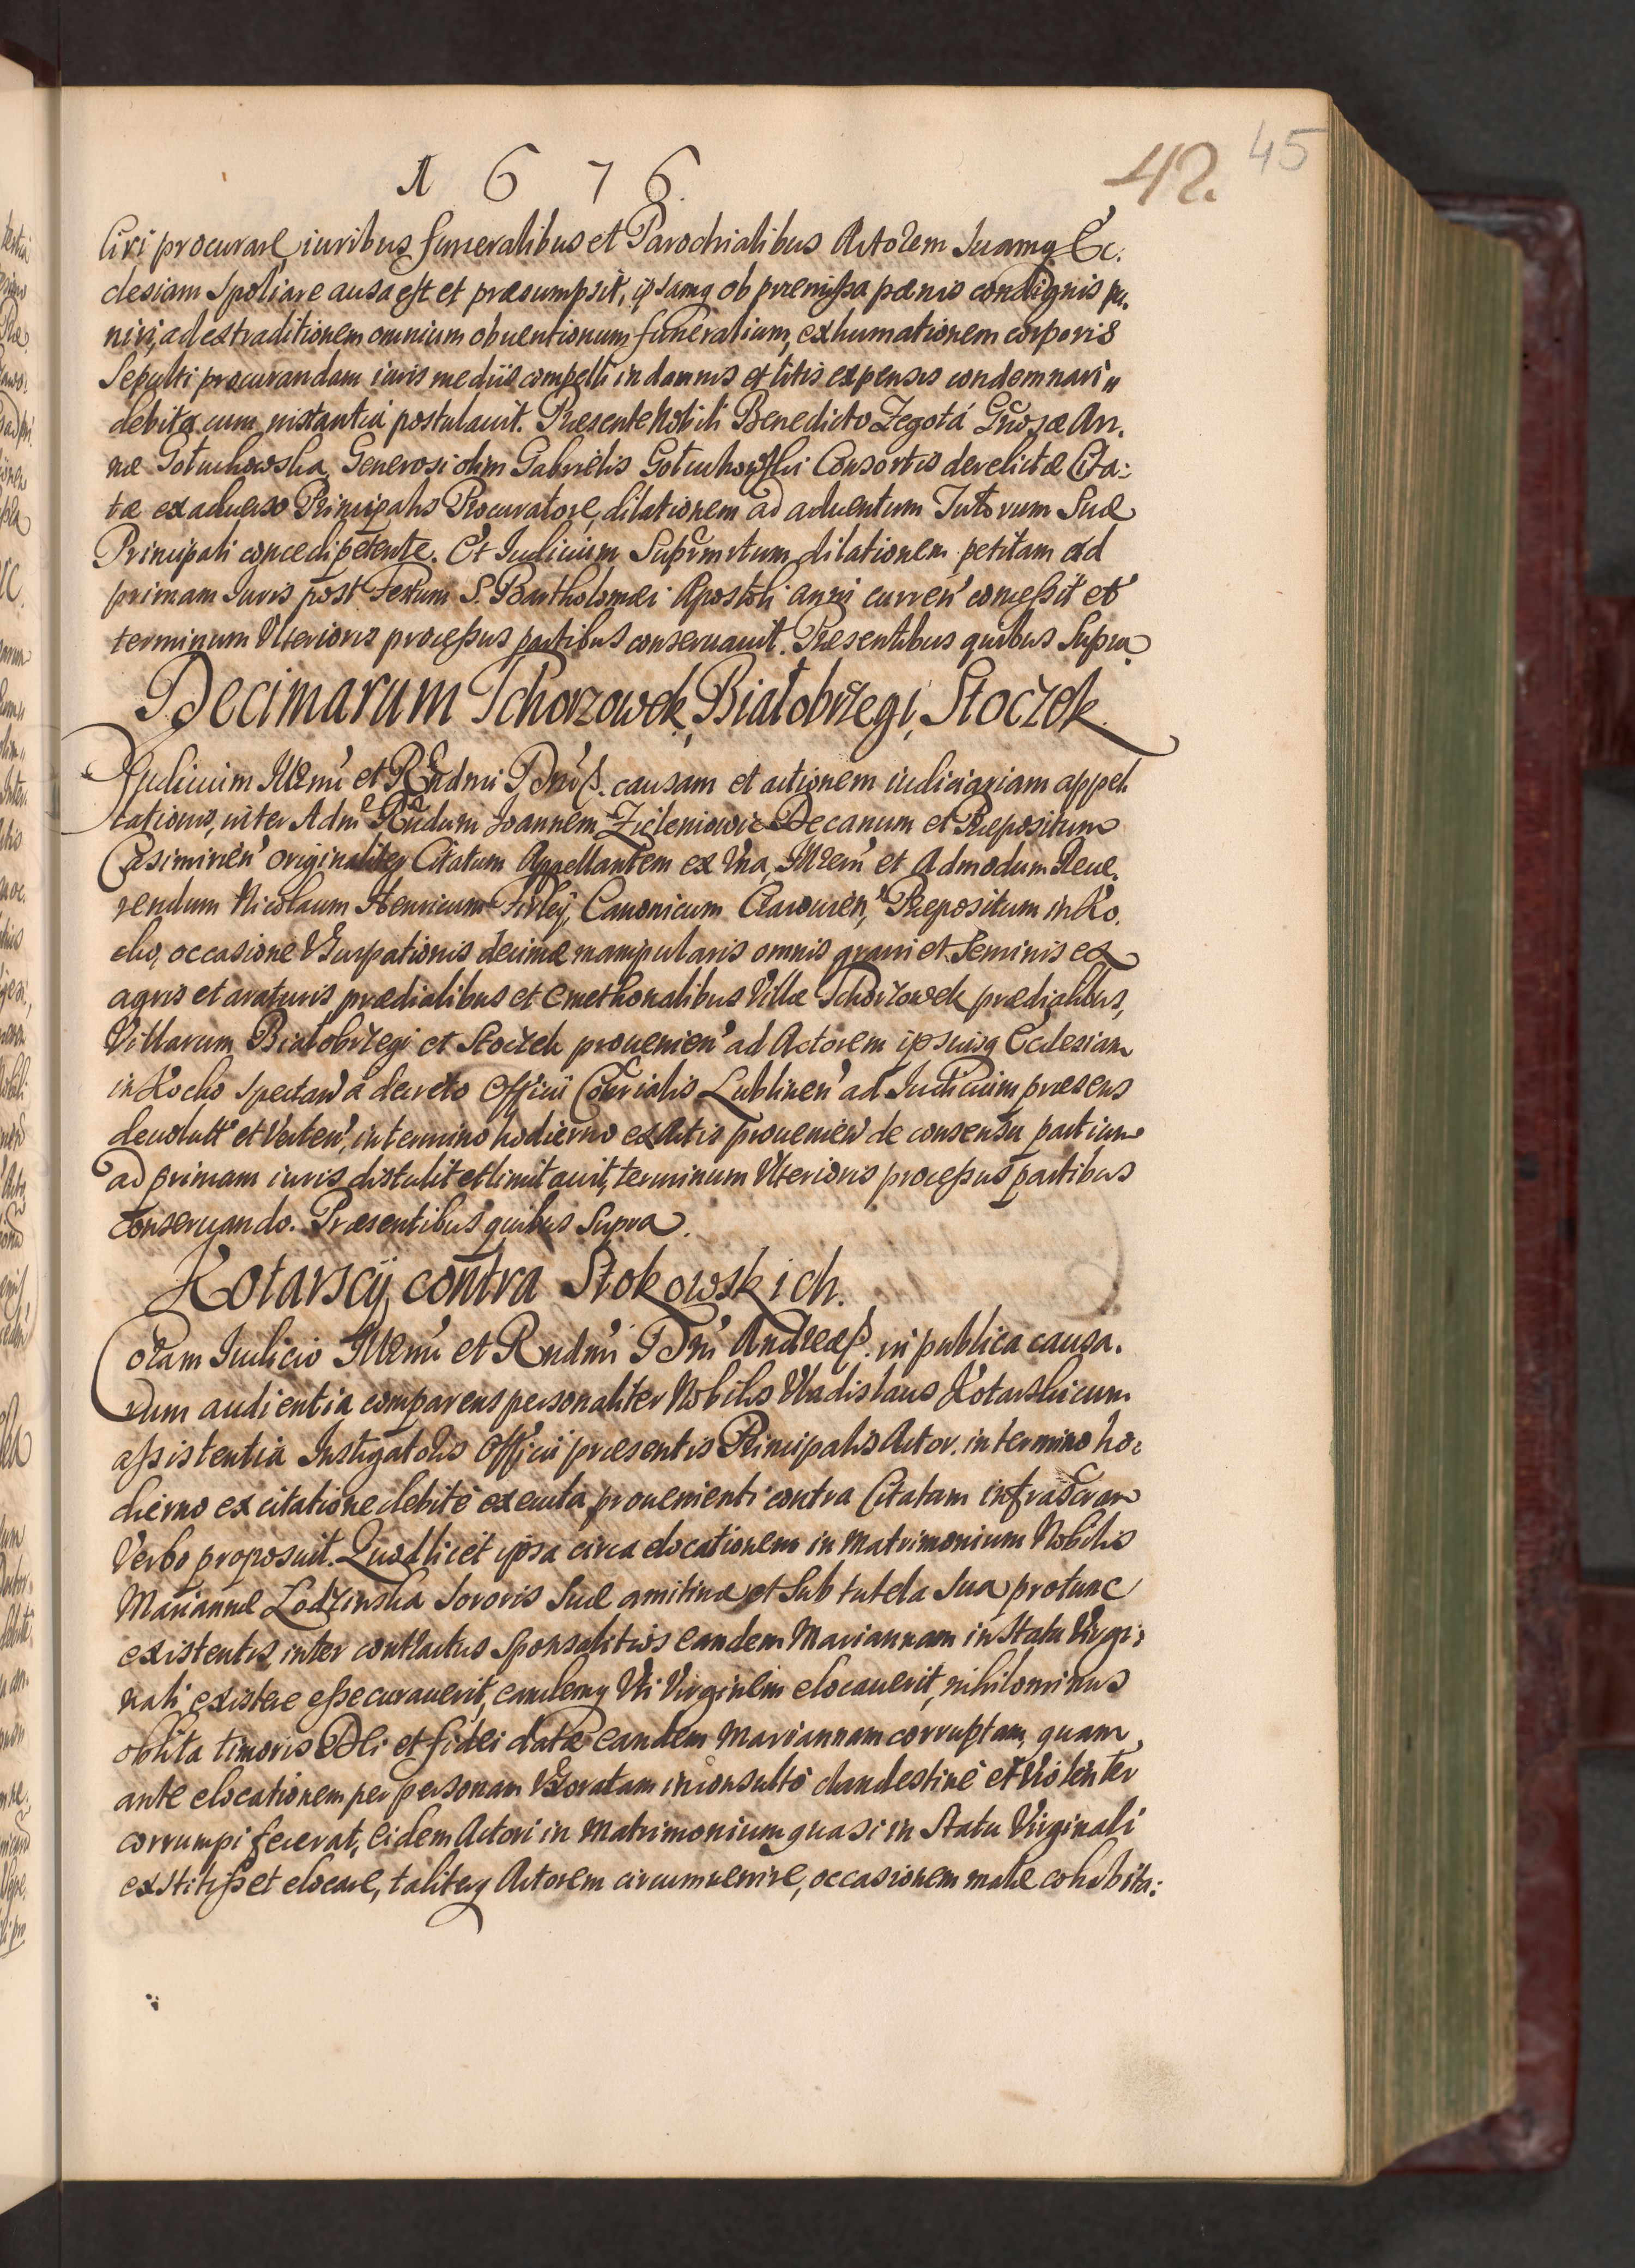 1676.
42. 45
liri procurare, iuribus funeralibus et Parochialibus Actorem suamq Ec.
clesiam spoliare ausa est et præsumpsit, ipsamq ob præmissa pœnis condignis pu.
niri, ad extraditionem omnium obuentionum funeralium, exhumationem corporis
sepulti procurandam iuris mediis compelli in damnis et litis expensis condemnari
debita cum instantia postulauit. Præsente Nobili Benedicto Zegota Gnosæ An.
næ Gotuchowska, Generosi olim Gabrielis Gotuchowski Consortis derelictæ Cita:
tæ ex aduerso Principalis Procuratore, dilationem ad aduentum Tutorum Suæ
Principali concedi petente. Et Iudicium Suprmrtum dilationem petitam ad
primam Iuris post Festum S. Bartholomæi Apostoli anni curren concessit et
terminum Vlterioris processus partibus conseruauit. Præsentibus quibus Supra.
Decimarum Tchorzowek, Białobrzegi, Stoczek.
Iudicium Illrmi et Rndmi Dni P. causam et actionem iudiciariam appel
lationis, inter Adm Rndum Joannem Zieleniowic Decanum et Præpositum
Casimirien originaliter Citatum Appellantem ex Vna, Illrem et Admodum Reue.
rendum Nicolaum Henricum Firley, Canonicum Cracouien, Præpositum in Ko.
cko, occasione Vsurpationis decimæ manipularis omnis grani et seminis ex
agris et araturis prædialibus et Cmethonalibus Villæ Tchorzowek prædialibus,
Villarum Białobrzegi et Stoczek prouenien ad Actorem ipsiusq Ecclesiam
in Kocko spectan a decreto Officii Consrialis Lublinen ad Iudicium præsens
deuolutt et Verten, in termino hodierno ex Actis prouenien de consensu partium
ad primam iuris distulit et limitauit, terminum Vlterioris processus partibus
conseruando. Præsentibus quibus Supra.
Kotarscij contra Stokowskich.
Coram Iudicio Illrmi et Rndmi Dni Andreæ P. in publica causa.
rum audientia comparens personaliter Nobilis Vladislaus Kotarski cum
assistentia Instigatoris Officii præsentis Principalis Actor, in termino ho:
dierno ex citatione debite executa prouenienti contra Citatam infrascram
Verbo proposuit. Quod licet ipsa circa elocationem in Matrimonium Nobilis
Mariannæ Lodzinska sororis Suæ amitinæ et sub tutela sua protunc
existentis, inter contractus sponsalitios eandem Mariannam in statu Virgi:
nali existere esse curauerit, eandemq Vti Virginem elocauerit, nihilominus
oblita timoris DEi et fidei datæ eandem Mariannam corruptam, quam
ante elocationem per personam Vxoratam inconsulto clandestine et Violenter
corrumpi fecerat, eidem Actori in Matrimonium quasi in Statu Virginali
exstitisset elocare, taliterq Actorem circumuenire, occasionem malæ cohabita: